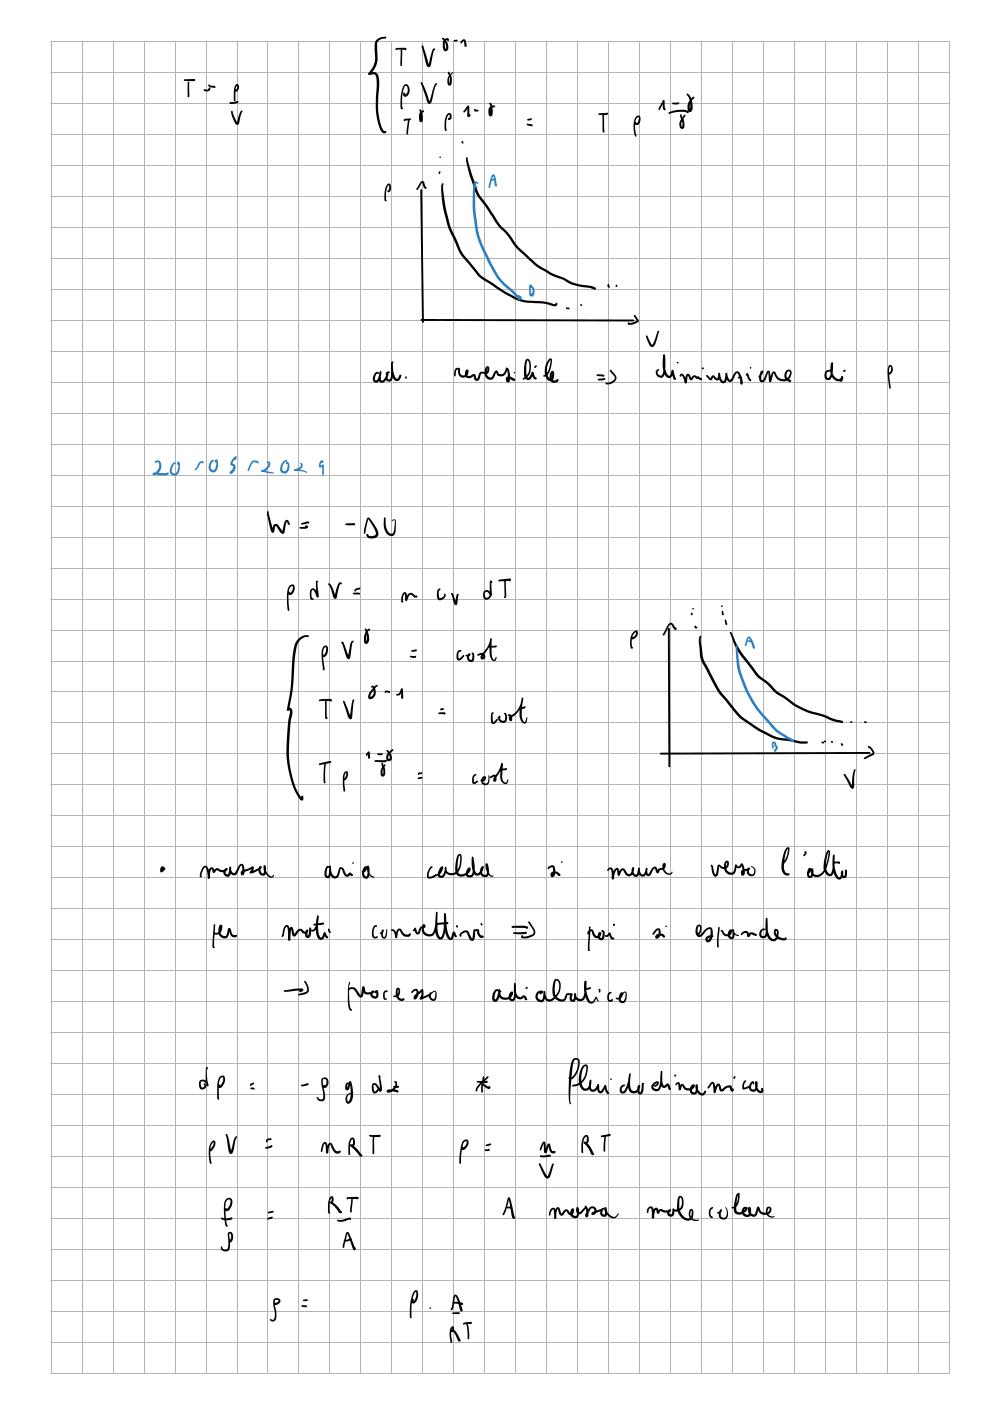 T V^γ-1
T ~ p/V
p V^γ
T^γ p^1-γ = T p^(1-γ)/γ
p A
B
V
ad. reversibile => diminuzione di p
20/05/2024
W = -ΔU
p dV = n cv dT
p V^γ = cost
p A
T V^γ-1 = cost
B
T p^(1-γ)/γ = cost
V
• massa aria calda si muove verso l'alto
per moti convettivi => poi si espande
-> processo adiabatico
dp = -ρ g dz * fluidodinamica
pV = nRT p = n/V RT
p/ρ = RT/A A massa molecolare
ρ = p · A/RT